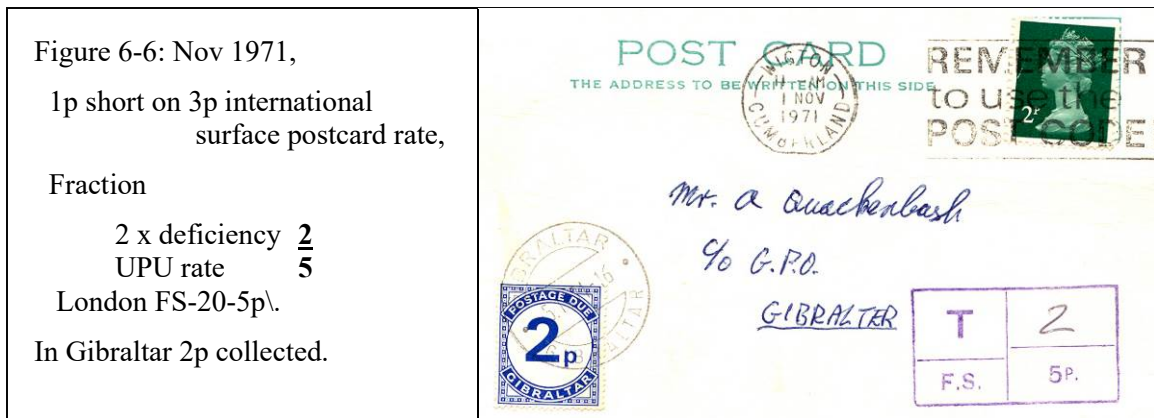 Figure 6-6: Nov 1971,
1p short on 3p international
surface postcard rate,
Fraction
2 x deficiency 2
UPU rate 5
London FS-20-5p\.
In Gibraltar 2p collected.
POST CARD
THE ADDRESS TO BE WRITTEN ON THIS SIDE
WIGTON
11 - AM
1 NOV
1971
CUMBERLAND
REMEMBER
to use the
POST CODE
2P
Mr. A Quackenbush
c/o G.P.O.
GIBRALTER
GIBRALTAR
POSTAGE DUE
2p
GIBRALTAR
T 2
F.S. 5P.